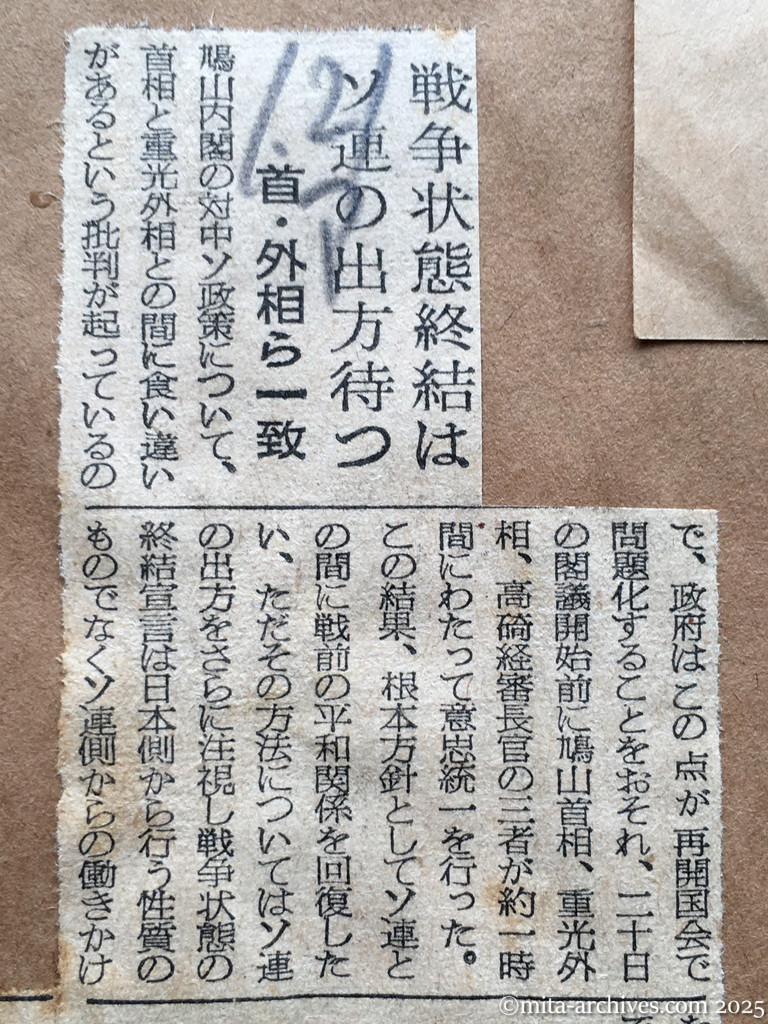 戦争状態終結は
ソ連の出方待つ
首・外相ら一致
1.21
鳩山内閣の対中ソ政策について、
首相と重光外相との間に食い違い
があるという批判が起っているの
で、政府はこの点が再開国会で
問題化することをおそれ、二十日
の閣議開始前に鳩山首相、重光外
相、高碕経審長官の三者が約一時
間にわたって意思統一を行った。
この結果、根本方針としてソ連と
の間に戦前の平和関係を回復した
い、ただその方法についてはソ連
の出方をさらに注視し戦争状態の
終結宣言は日本側から行う性質の
ものでなくソ連側からの働きかけ
©mita-archives.com 2025